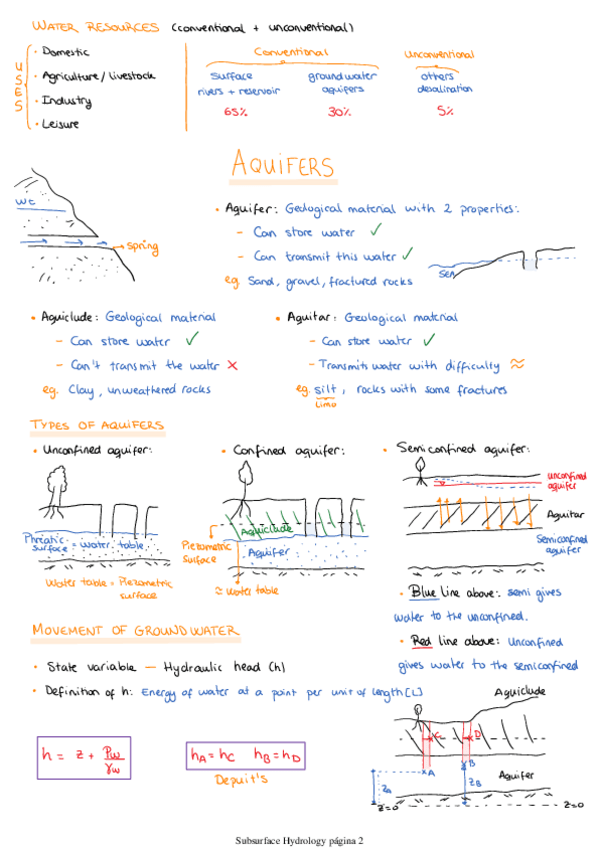 WATER RESOURCES (conventional + unconventional)
USES
• Domestic
• Agriculture / livestock
• Industry
• Leisure
Conventional
Unconventional
Surface
rivers + reservoir
groundwater
aquifers
others
desalination
65%
30%
5%
AQUIFERS
WC
spring
• Aquifer: Geological material with 2 properties:
- Can store water ✓
- Can transmit this water ✓
eg. Sand, gravel, fractured rocks
sea
• Aquiclude: Geological material
- Can store water ✓
- Can't transmit the water ✗
eg. Clay, unweathered rocks
• Aquitar: Geological material
- Can store water ✓
- Transmits water with difficulty ≈
eg. silt, rocks with some fractures
Limo
TYPES OF AQUIFERS
• Unconfined aquifer:
Phriatic
surface = water table
Water table = Piezometric
surface
• Confined aquifer:
Aquiclude
Piezometric
surface
Aquifer
≈ Water table
• Semiconfined aquifer:
unconfined
aquifer
Aquitar
Semiconfined
aquifer
• Blue line above: semi gives
water to the unconfined.
• Red line above: Unconfined
gives water to the semiconfined
MOVEMENT OF GROUNDWATER
• State variable — Hydraulic head (h)
• Definition of h: Energy of water at a point per unit of length [L]
h = z + Pw/γw
hA = hC hB = hD
Depuit's
Aquiclude
C
D
A
B
zA
zB
Aquifer
z=0
z=0
Subsurface Hydrology página 2